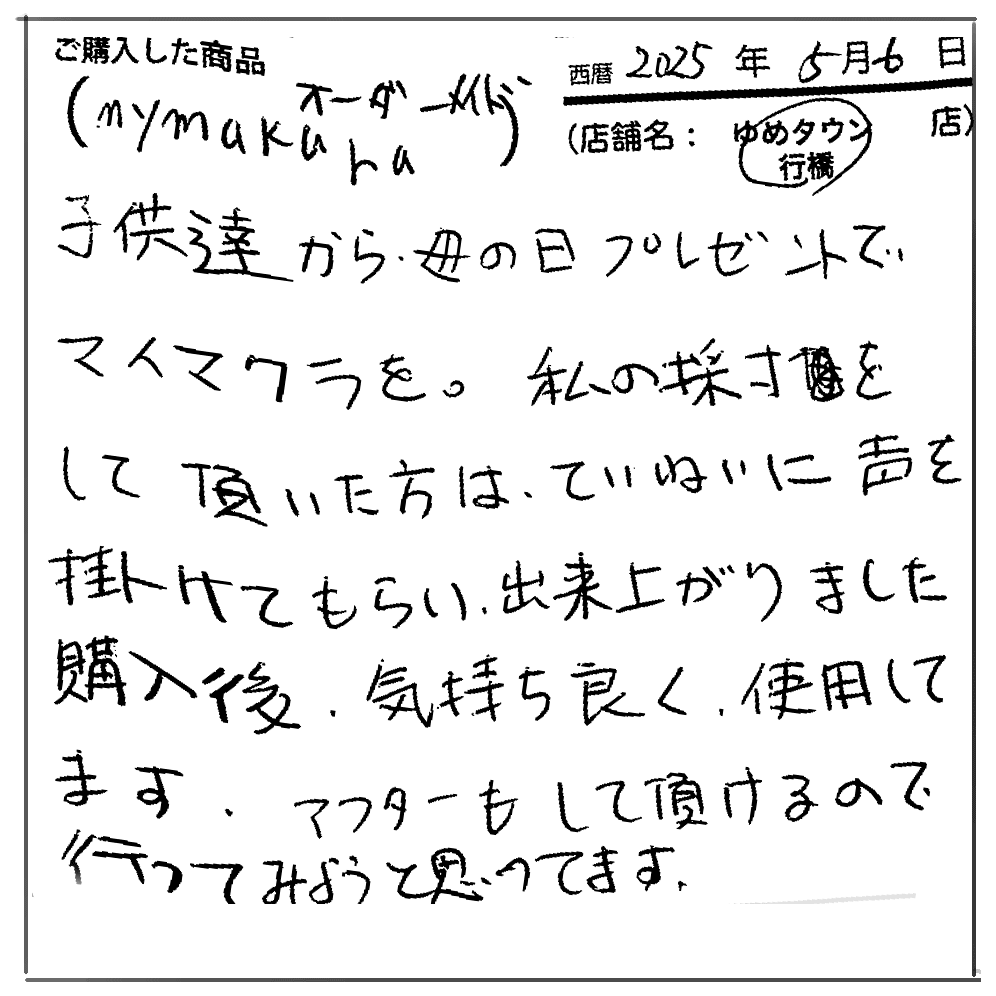 ご購入した商品
西暦 2025 年 5月6日
(nymakura オーダーメイド)
(店舗名： ゆめタウン行橋 店)
子供達から、母の日プレゼントで、
マイマクラを。私の採寸を
して頂いた方は、ていねいに声を
掛けてもらい、出来上がりました
購入後、気持ち良く、使用して
ます、アフターもして頂けるので
行ってみようと思ってます、